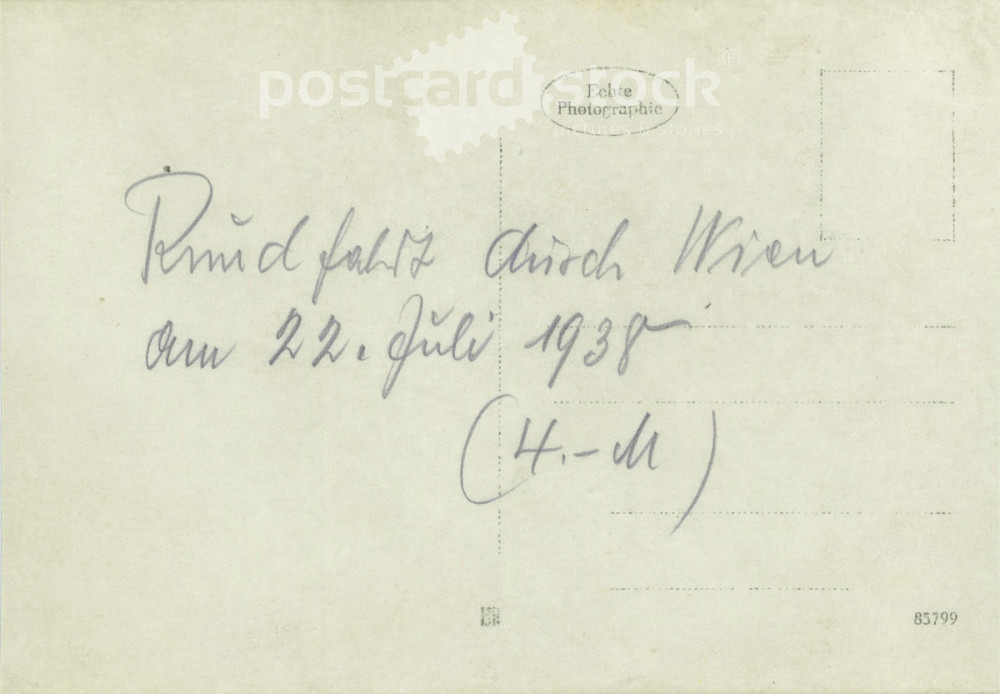 postcard stock ®
pictures & stories
Echte
Photographie
Rundfahrt durch Wien
am 22. Juli 1938
(4.-M)
85799